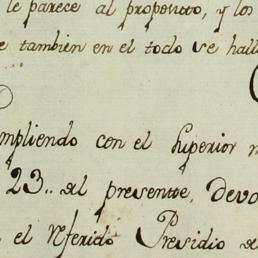 le parece al proposito, y los
e tambien en el todo se hall
mpliendo con el Superior
23.. del presente, devo
el referido Presidio de